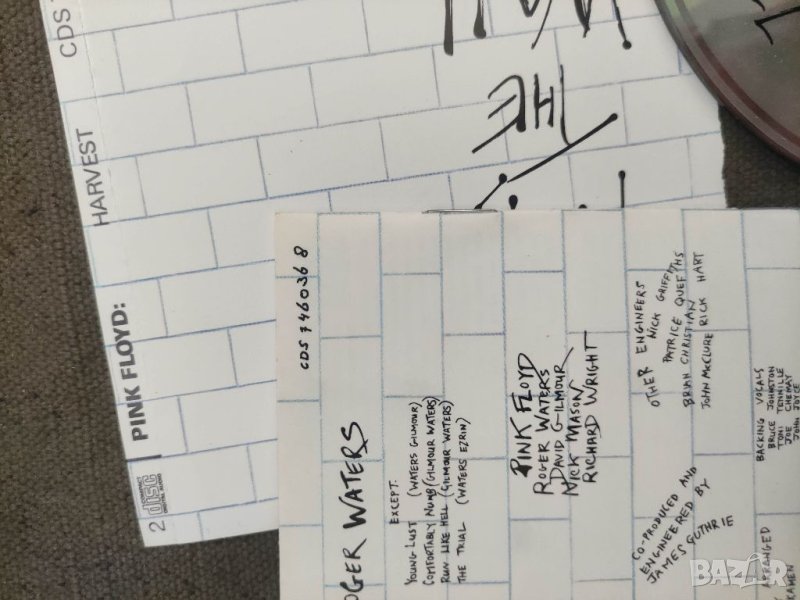 CDS
HARVEST
PINK FLOYD:
2
COMPACT
disc
DIGITAL AUDIO
CDS 7460368
OGER WATERS
EXCEPT.
YOUNG LUST (WATERS GILMOUR)
COMFORTABLY NUMB (GILMOUR WATERS)
RUN LIKE HELL (GILMOUR WATERS)
THE TRIAL (WATERS EZRIN)
PINK FLOYD
ROGER WATERS
DAVID GILMOUR
NICK MASON
RICHARD WRIGHT
CO-PRODUCED AND
ENGINEERED BY
JAMES GUTHRIE
OTHER ENGINEERS
NICK GRIFFITHS
PATRICE QUEF
BRIAN CHRISTIAN
JOHN McCLURE RICK HART
BACKING VOCALS
BRUCE JOHNSTON
TONI TENNILLE
JOE CHEMAY
JOHN JOYCE
ARRANGED
KAMEN
BAZAR
bg